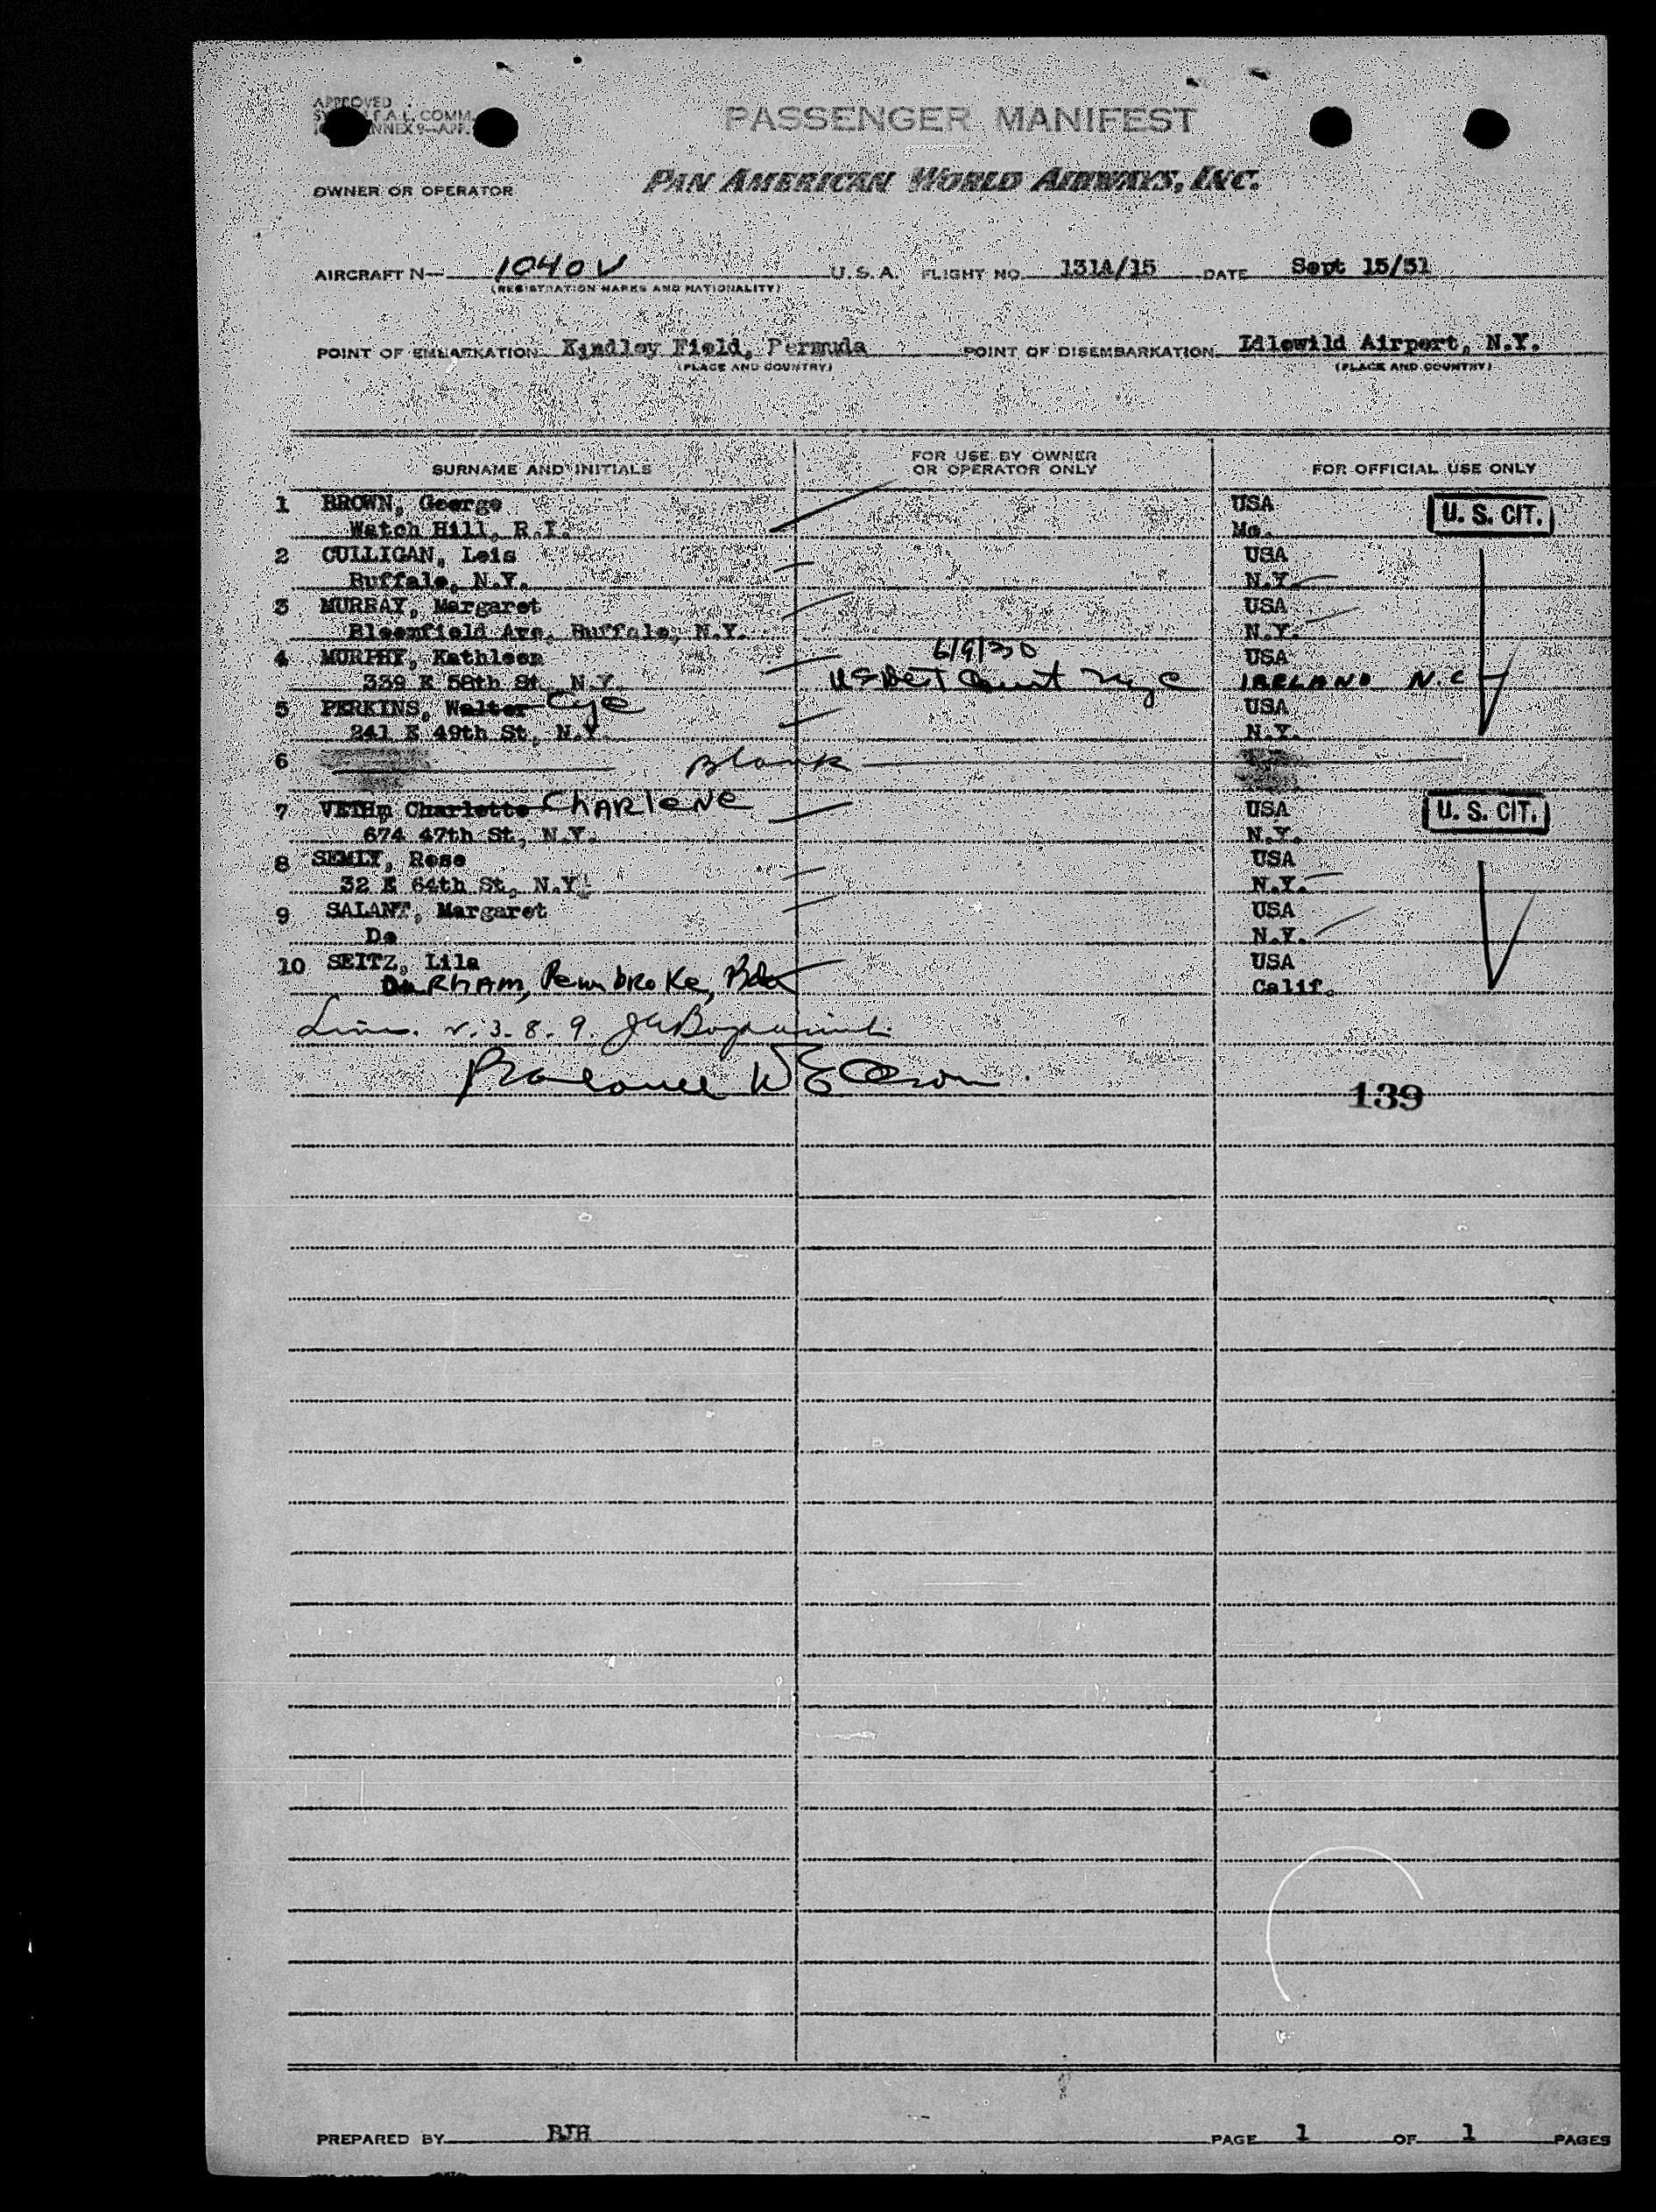 APPROVED
F.A.L. COMM.
ANNEX 9-APP.
PASSENGER MANIFEST
OWNER OR OPERATOR PAN AMERICAN WORLD AIRWAYS, INC.
AIRCRAFT N- 1040V U. S. A. FLIGHT NO. 131A/15 DATE Sept 15/51
(REGISTRATION MARKS AND NATIONALITY)
POINT OF EMBARKATION Kindley Field, Bermuda POINT OF DISEMBARKATION Idlewild Airport, N.Y.
(PLACE AND COUNTRY) (PLACE AND COUNTRY)
SURNAME AND INITIALS FOR USE BY OWNER OR OPERATOR ONLY FOR OFFICIAL USE ONLY
1 BROWN, George USA U. S. CIT.
Watch Hill, R.I. Mo.
2 CULLIGAN, Lois USA
Buffalo, N.Y. N.Y.
3 MURRAY, Margaret USA
Bloomfield Ave, Buffalo, N.Y. N.Y.
4 MURPHY, Kathleen 6/9/30 USA
339 E 58th St, N.Y. US Dist Court NYC IRELAND N.C
5 PERKINS, Walter Cye USA
241 E 49th St, N.Y. N.Y.
6 Blank
7 VEIHm Charlotte CHARleNe USA U. S. CIT.
674 47th St, N.Y. N.Y.
8 SEMLY, Rose USA
32 E 64th St, N.Y. N.Y.
9 SALANT, Margaret USA
Do N.Y.
10 SEITZ, Lila USA
DuRHAM, Pembroke, Bda Calif.
3. 8. 9.
139
PREPARED BY BJH PAGE 1 OF 1 PAGES